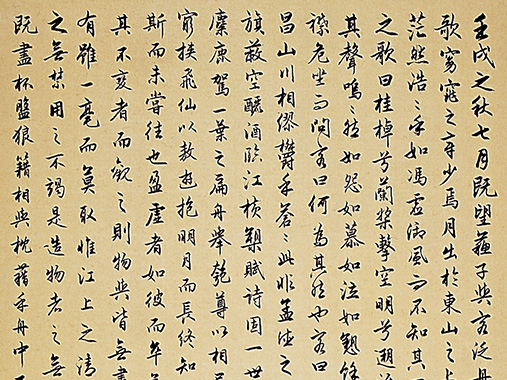 壬戌之秋七月既望蘇子與客泛舟
歌窈窕之章少焉月出於東山之上
茫然浩浩乎如馮虛御風而不知其
之歌曰桂棹兮蘭槳擊空明兮遡
其聲嗚嗚然如怨如慕如泣如訴餘
襟危坐而問客曰何為其然也客曰
昌山川相繆鬱乎蒼蒼此非孟德之
旗蔽空釃酒臨江橫槊賦詩固一世
麋鹿駕一葉之扁舟舉匏尊以相
窮挾飛仙以遨遊抱明月而長終知
斯而未嘗往也盈虛者如彼而卒
其不變者而觀之則物與皆無盡
有雖一毫而莫取惟江上之清
之無禁用之不竭是造物者之無
既盡杯盤狼籍相與枕藉乎舟中不